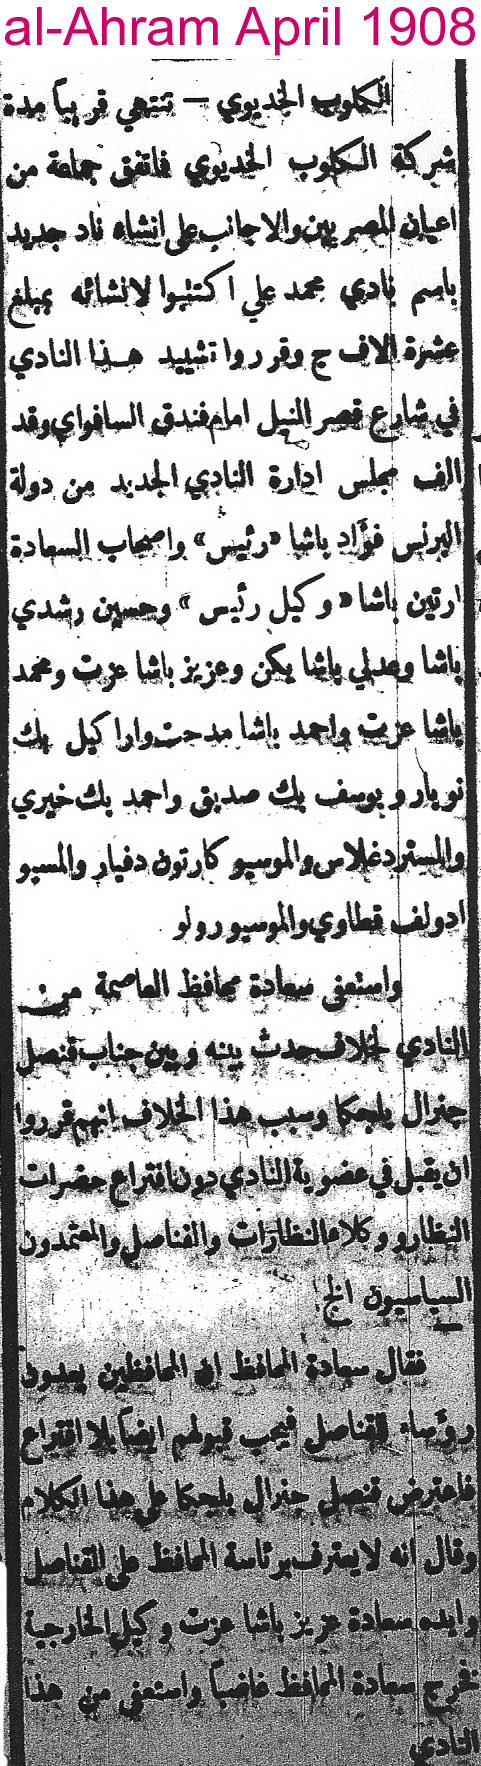 al-Ahram April 1908
الكلوب الخديوي – تنتهي قريباً مدة
شركة الكلوب الخديوي فاتفق جماعة من
اعيان المصريين والاجانب على انشاء ناد جديد
باسم نادي محمد علي اكتتبوا لانشائه بمبلغ
عشرة الاف ج وقرروا تشييد هذا النادي
في شارع قصر النيل امام فندق السافواي وقد
الف مجلس ادارة النادي الجديد من دولة
البرنس فؤاد باشا «رئيس» واصحاب السعادة
ارتين باشا «وكيل رئيس» وحسين رشدي
باشا وعدلي باشا يكن وعزيز باشا عزت ومحمد
باشا عزت واحمد باشا مدحت واراكيل بك
نوبار ويوسف بك صديق واحمد بك خيري
والمستر دغلاس والموسيو كارتون دفيار والمسيو
ادولف قطاوي والموسيو رولو
واستعفى سعادة محافظ العاصمة من
النادي لخلاف حدث بينه وبين جناب قنصل
جنرال بلجكا وسبب هذا الخلاف انهم قرروا
ان يقبل في عضوية النادي دون اقتراع حضرات
النظار ووكلاء النظارات والقناصل والمعتمدون
السياسيون الخ
فقال سعادة المحافظ ان المحافظين يعدون
رؤساء للقناصل فيجب قبولهم ايضاً بلا اقتراع
فاعترض قنصل جنرال بلجكا على هذا الكلام
وقال انه لا يعترف برئاسة المحافظ على القناصل
وايده سعادة عزيز باشا عزت وكيل الخارجية
فخرج سعادة المحافظ غاضباً واستعفى من هذا
النادي